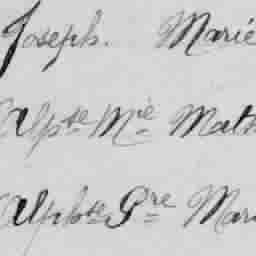 Joseph. Marie
Alpse Mie Math
Alphse Pre Mari